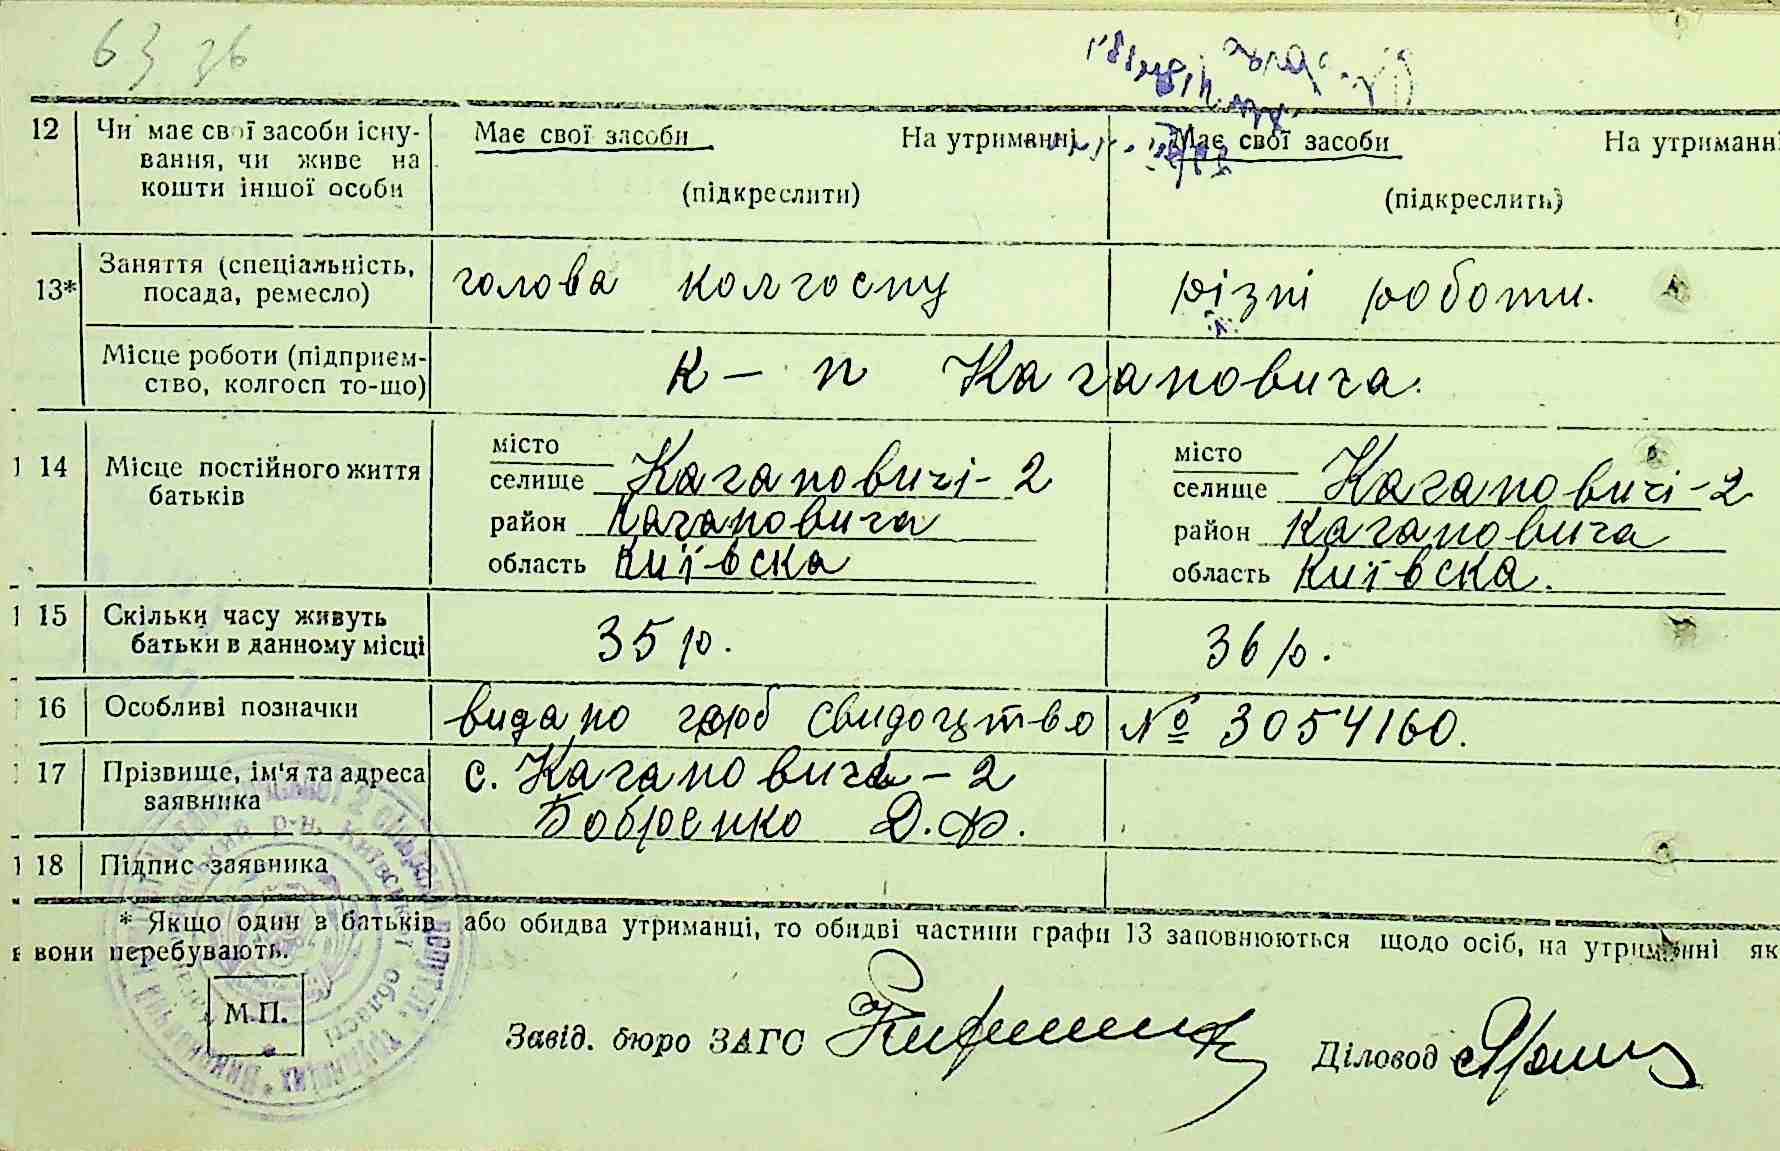 63 зв
12 Чи має свої засоби існу-
вання, чи живе на
кошти іншої особи
Має свої засоби На утриманні
(підкреслити)
Має свої засоби На утриманні
(підкреслити)
13* Заняття (спеціальність,
посада, ремесло)
голова колгоспу
різні роботи.
Місце роботи (підприєм-
ство, колгосп то-що)
к-п Кагановича.
14 Місце постійного життя
батьків
місто
селище Кагановичі-2
район Кагановича
область Київска
місто
селище Кагановичі-2
район Кагановича
область Київска.
15 Скільки часу живуть
батьки в данному місці
35 р.
36 р.
16 Особливі позначки
видано гербове свидоцтво № 3054160.
17 Прізвище, ім'я та адреса
заявника
с. Кагановичі-2
Бобренко Д.Ф.
18 Підпис заявника
* Якщо один з батьків або обидва утриманці, то обидві частини графи 13 заповнюються щодо осіб, на утриманні як
вони перебувають.
М.П.
Завід. бюро ЗАГС
Діловод